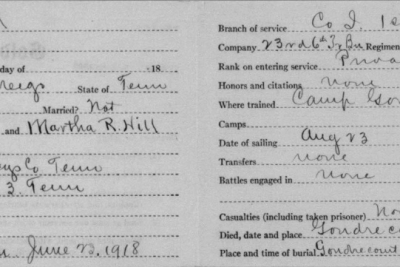 day of 18
Meigs State of Tenn
Married? Not
and Martha R. Hill
Co Tenn
3. Tenn
June 23, 1918
Branch of service Co I. 1s
Company 23rd 6th Tr Bn Regimen
Rank on entering service Priva
Honors and citations none
Where trained Camp Gor
Camps
Date of sailing Aug 23
Transfers none
Battles engaged in none
Casualties (including taken prisoner) No
Died, date and place Gondreco
Place and time of burial Gondrecourt